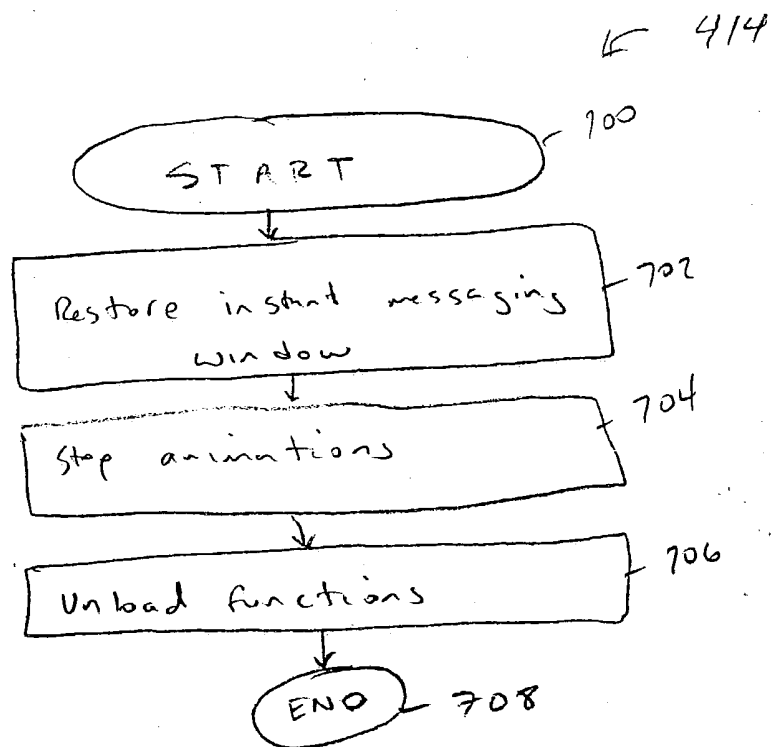 414
START
700
Restore instant messaging
window
702
Stop animations
704
Unload functions
706
END
708